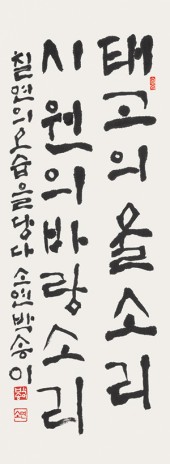 태고의 물소리
시원의 바람소리
칠연의 모습을 담다 소연 박송이